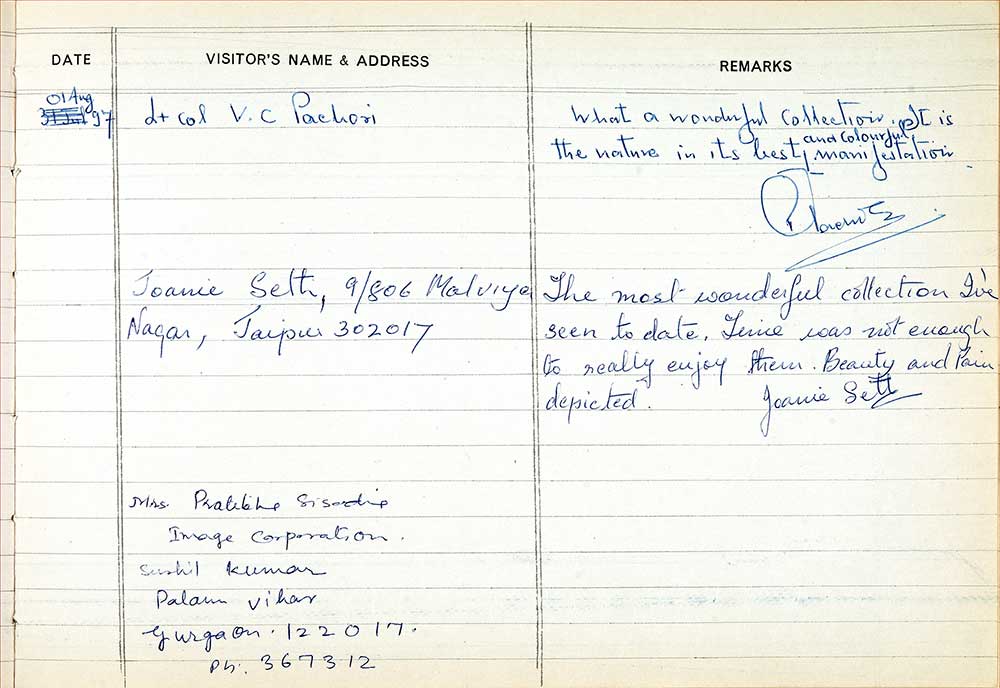 DATE VISITOR'S NAME & ADDRESS REMARKS
01 Aug
97
Lt col V. C Pachori
What a wonderful collection. It is
the nature in its best and colourful manifestation
Joanie Seth, 9/806 Malviya
Nagar, Jaipur 302017
The most wonderful collection I've
seen to date. Time was not enough
to really enjoy them. Beauty and Pain
depicted.
Joanie Seth
Mrs. Pratibha Sisodia
Image Corporation.
Sushil Kumar
Palam Vihar
Gurgaon. 122017.
Ph. 367312